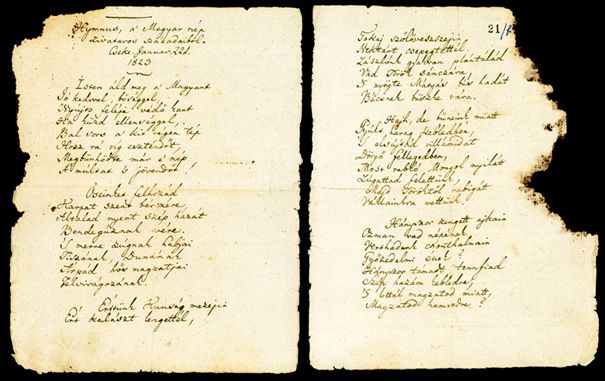 Hymnus, a' Magyar nép
zivataros századaiból.
Cseke. Januar. 22d.
1823
Isten áld meg a' Magyart
Jó kedvvel, bőséggel,
Nyújts feléje védő kart
Ha küzd ellenséggel;
Bal sors a' kit régen tép
Hozz rá víg esztendőt,
Megbűnhődte már e' nép
A' múltat 's jövendőt!
Őseinket felhozád
Kárpát szent bérczére,
Általad nyert szép hazát
Bendegúznak vére.
'S merre zúgnak habjai
Tiszának, Dunának
Árpád hős magzatjai
Felvirágozának.
Értünk Kunság mezején
Ért kalászt lengettél,
21/
Tokaj szőlővesszején
Nektárt csepegtettél.
Zászlónk gyakran plántálád
Vad Török sánczára
'S nyögte Mátyás bús hadát
Bécsnek büszke vára.
Hajh, de bűneink miatt
Gyúlt harag kebledben,
'S elsújtád villámidat
Dörgő fellegedben,
Most rabló Mongol nyilát
Zúgattad felettünk,
Majd Töröktől rabigát
Vállainkra vettünk.
Hányszor zengett ajkain
Ozman vad népének
Vert hadunk csonthalmain
Győzedelmi ének!
Hányszor támadt tenfiad
Szép hazám kebledre,
'S lettél magzatod miatt,
Magzatod hamvvedre?